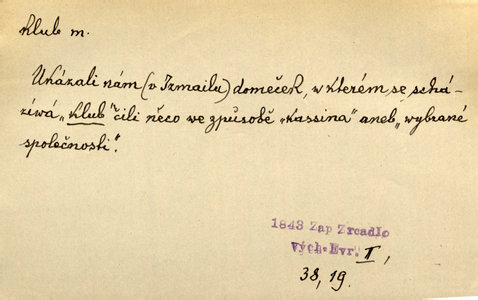 Klub m.
Ukázali nám (v Izmailu) domeček, w kterém se schá-
zíwá „Klub" čili něco we způsobě „Kassina" aneb „wybrané
společnosti".
1843 Zap Zrcadlo
Vých-Evr. I,
38, 19.